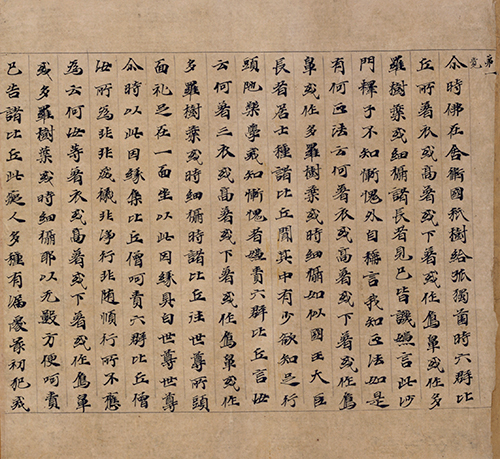 尒時佛在舍衛國祇樹給孤獨薗時六群比
丘所著衣或高著或下著或作象鼻或作多
羅樹葉或時細襵諸長者見已皆譏嫌言此沙
門釋子不知慚愧外自稱言我知正法如是
有何正法云何著衣或高著或下著或作象
鼻或作多羅樹葉或時細襵如似國王大臣
長者居士種諸比丘聞其中有少欲知足行
頭陁樂學戒知慚愧者嫌責六群比丘言汝
云何著三衣或高著或下著或作象鼻或作
多羅樹葉或時細襵時諸比丘往世尊所頭
面礼足在一面坐以此因緣具白世尊世尊
尒時以此因緣集比丘僧呵責六群比丘僧
汝所為非非威儀非淨行非随順行所不應
為云何汝等著衣或高著或下著或作象鼻
或多羅樹葉或時細襵耶以无數方便呵責
已告諸比丘此癡人多種有漏處冣初犯戒